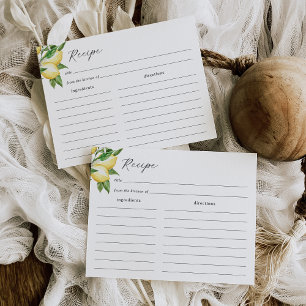 Recipe
title
from the kitchen of
ingredients
directions
Recipe
title
from the kitchen of
ingredients
directions